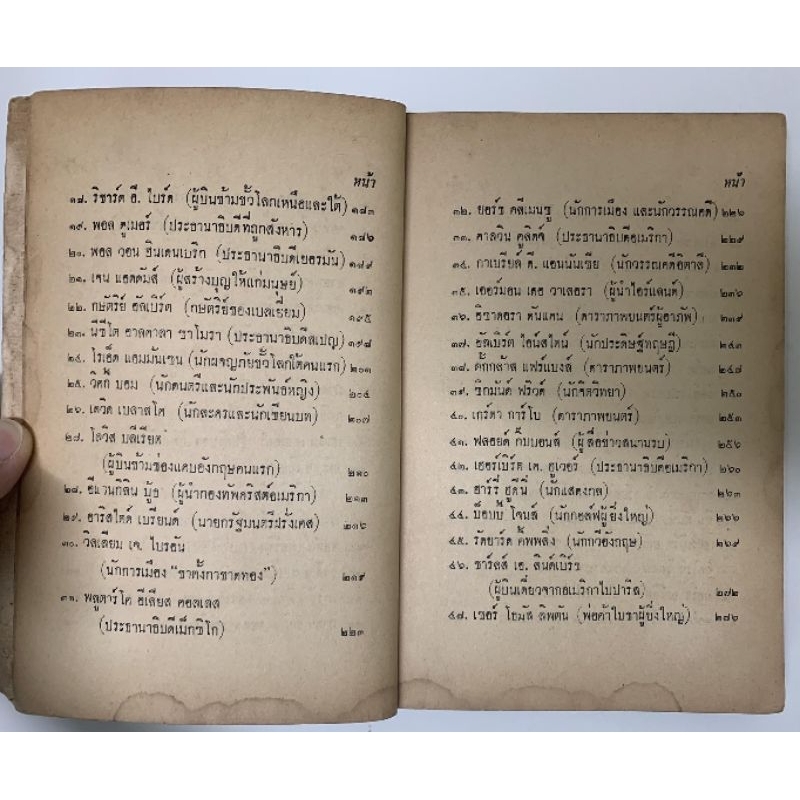 หน้า
๑๘. ริชาร์ด อี. ไบร์ด (ผู้บินข้ามขั้วโลกเหนือและใต้) ๑๘๓
๑๙. พอล ดูเมอร์ (ประธานาธิบดีที่ถูกสังหาร) ๑๘๖
๒๐. พอล วอน ฮินเดนเบริก (ประธานาธิบดีเยอรมัน) ๑๘๙
๒๑. เจน แอดดัมส์ (ผู้สร้างบุญให้แก่มนุษย์) ๑๙๒
๒๒. กษัตริย์ อัลเบิร์ต (กษัตริย์ของเบลเยี่ยม) ๑๙๕
๒๓. นิซีโต อาลคาลา ซาโมรา (ประธานาธิบดีสเปญ) ๑๙๘
๒๔. โรเอ็ด แอมมันเซน (นักผจญภัยขั้วโลกใต้คนแรก) ๒๐๑
๒๕. วิคกี้ บอม (นักดนตรีและนักประพันธ์หญิง) ๒๐๔
๒๖. เดวิด เบลาสโค (นักละครและนักเขียนบท) ๒๐๗
๒๗. โลวิส บลีเรียต
(ผู้บินข้ามช่องแคบอังกฤษคนแรก) ๒๑๐
๒๘. อีแวนกิลิน บู๊ธ (ผู้นำกองทัพคริสต์อเมริกา) ๒๑๓
๒๙. อาริสไตด์ เบรียนด์ (นายกรัฐมนตรีฝรั่งเศส) ๒๑๖
๓๐. วิลเลียม เจ. ไบรอัน
(นักการเมือง “ขาตั้งกาขาดทอง”) ๒๑๙
๓๑. พลูตาร์โค อีเลียส คอลเลส
(ประธานาธิบดีเม็กซิโก) ๒๒๓
หน้า
๓๒. ยอร์ช คลีเมนซู (นักการเมือง และนักวรรณคดี) ๒๒๖
๓๓. คาลวิน คูลิดจ์ (ประธานาธิบดีอเมริกา) ๒๒๙
๓๔. กาเบรียล์ ดี. แอนนันเซีย (นักวรรณคดีอิตาลี) ๒๓๒
๓๕. เออร์มอน เดอ วาเลอรา (ผู้นำไอร์แลนด์) ๒๓๖
๓๖. อิซาดอรา ดันแคน (ดาราภาพยนตร์ผู้อาภัพ) ๒๓๙
๓๗. อัลเบิร์ต ไอน์สไตน์ (นักประดิษฐ์ทฤษฎี) ๒๔๓
๓๘. ดั๊กกลาส แฟร์แบงส์ (ดาราภาพยนตร์) ๒๔๗
๓๙. ซิกมันด์ ฟรอด์ (นักจิตวิทยา) ๒๕๑
๔๐. เกร์ตา การ์โบ (ดาราภาพยนตร์) ๒๕๓
๔๑. ฟลอยด์ กิ๊บบอนส์ (ผู้สื่อข่าวสนามรบ) ๒๕๖
๔๒. เฮอร์เบิร์ต เค. ฮูเวอร์ (ประธานาธิบดีอเมริกา) ๒๖๐
๔๓. ฮาร์รี่ ฮูดินี่ (นักแสดงกล) ๒๖๓
๔๔. บ๊อบบี้ โจนส์ (นักกอล์ฟผู้ยิ่งใหญ่) ๒๖๖
๔๕. รัดยาร์ด คิ๊พพลิ่ง (นักกวีอังกฤษ) ๒๖๙
๔๖. ชาร์ลส์ เอ. ลินด์เบิร์ช
(ผู้บินเดี่ยวจากอเมริกาไปปารีส) ๒๗๒
๔๗. เซอร์ โธมัส ลิพตัน (พ่อค้าใบชาผู้ยิ่งใหญ่) ๒๗๖